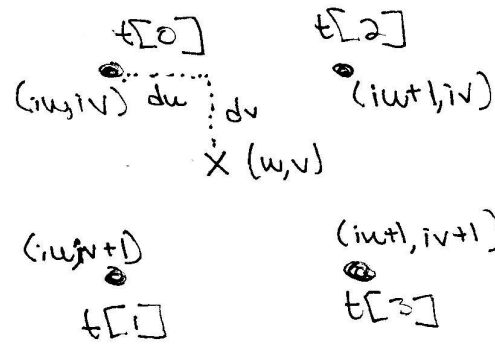 t[0] t[2]
(iu,iv) du (iu+1,iv)
dv
X (u,v)
(iu,iv+1) (iu+1,iv+1)
t[1] t[3]